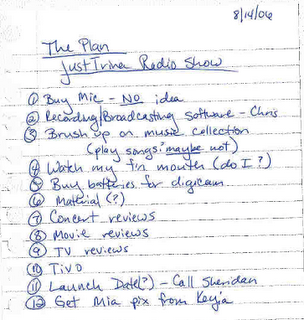 8/14/06
The Plan
JustTrina Radio Show
① Buy Mic - NO idea
② Recording/Broadcasting Software - Chris
③ Brush up on music collection
(play songs? maybe not)
④ Watch my f'n mouth (do I?)
⑤ Buy batteries for digicam
⑥ Material (?)
⑦ Concert reviews
⑧ Movie reviews
⑨ TV reviews
⑩ TiVo
⑪ Launch Date(?) - Call Sheridan
⑫ Get Mia pix from Kenja